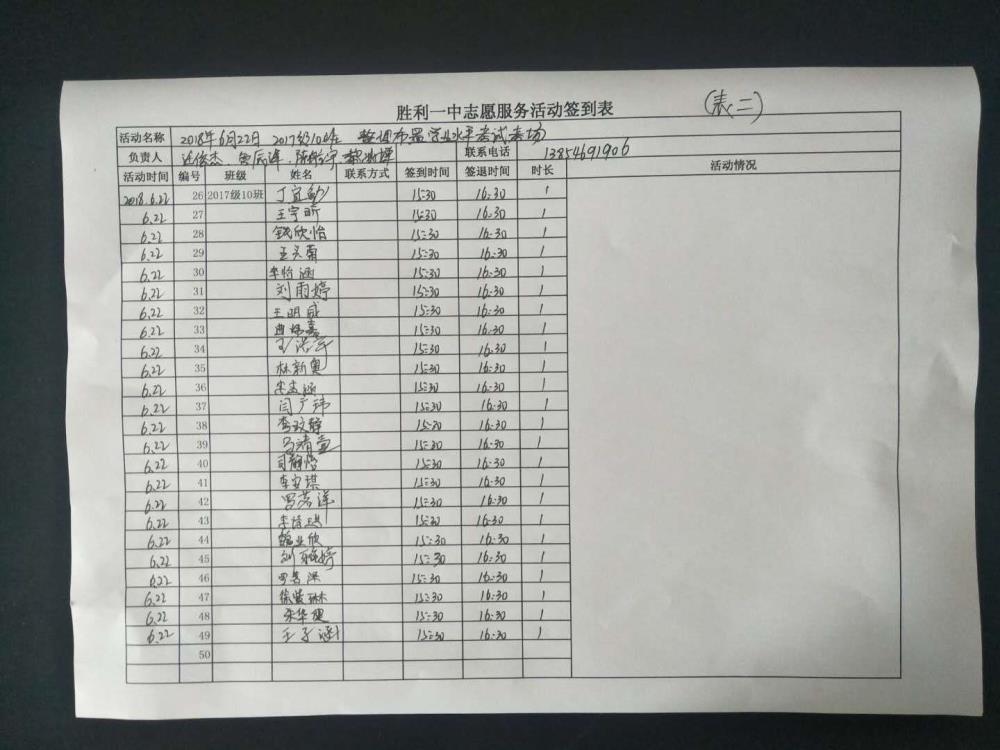 胜利一中志愿服务活动签到表 (表二)
活动名称 2018年6月22日 2017级10班 整理布置学业水平考试考场
负责人 联系电话 13854691906
活动时间 编号 班级 姓名 联系方式 签到时间 签退时间 时长 活动情况
2018.6.22 26 2017级10班 丁宜 15:30 16:30 1
6.22 27 王宇昕 15:30 16:30 1
6.22 28 钱欣怡 15:30 16:30 1
6.22 29 15:30 16:30 1
6.22 30 李怡涵 15:30 16:30 1
6.22 31 刘雨婷 15:30 16:30 1
6.22 32 王明威 15:30 16:30 1
6.22 33 15:30 16:30 1
6.22 34 王浩宇 15:30 16:30 1
6.22 35 林新奥 15:30 16:30 1
6.22 36 15:30 16:30 1
6.22 37 闫广玮 15:30 16:30 1
6.22 38 李玟静 15:30 16:30 1
6.22 39 马清萱 15:30 16:30 1
6.22 40 司静怡 15:30 16:30 1
6.22 41 李安琪 15:30 16:30 1
6.22 42 15:30 16:30 1
6.22 43 15:30 16:30 1
6.22 44 15:30 16:30 1
6.22 45 15:30 16:30 1
6.22 46 15:30 16:30 1
6.22 47 徐紫琳 15:30 16:30 1
6.22 48 宋华健 15:30 16:30 1
6.22 49 王子涵 15:30 16:30 1
50